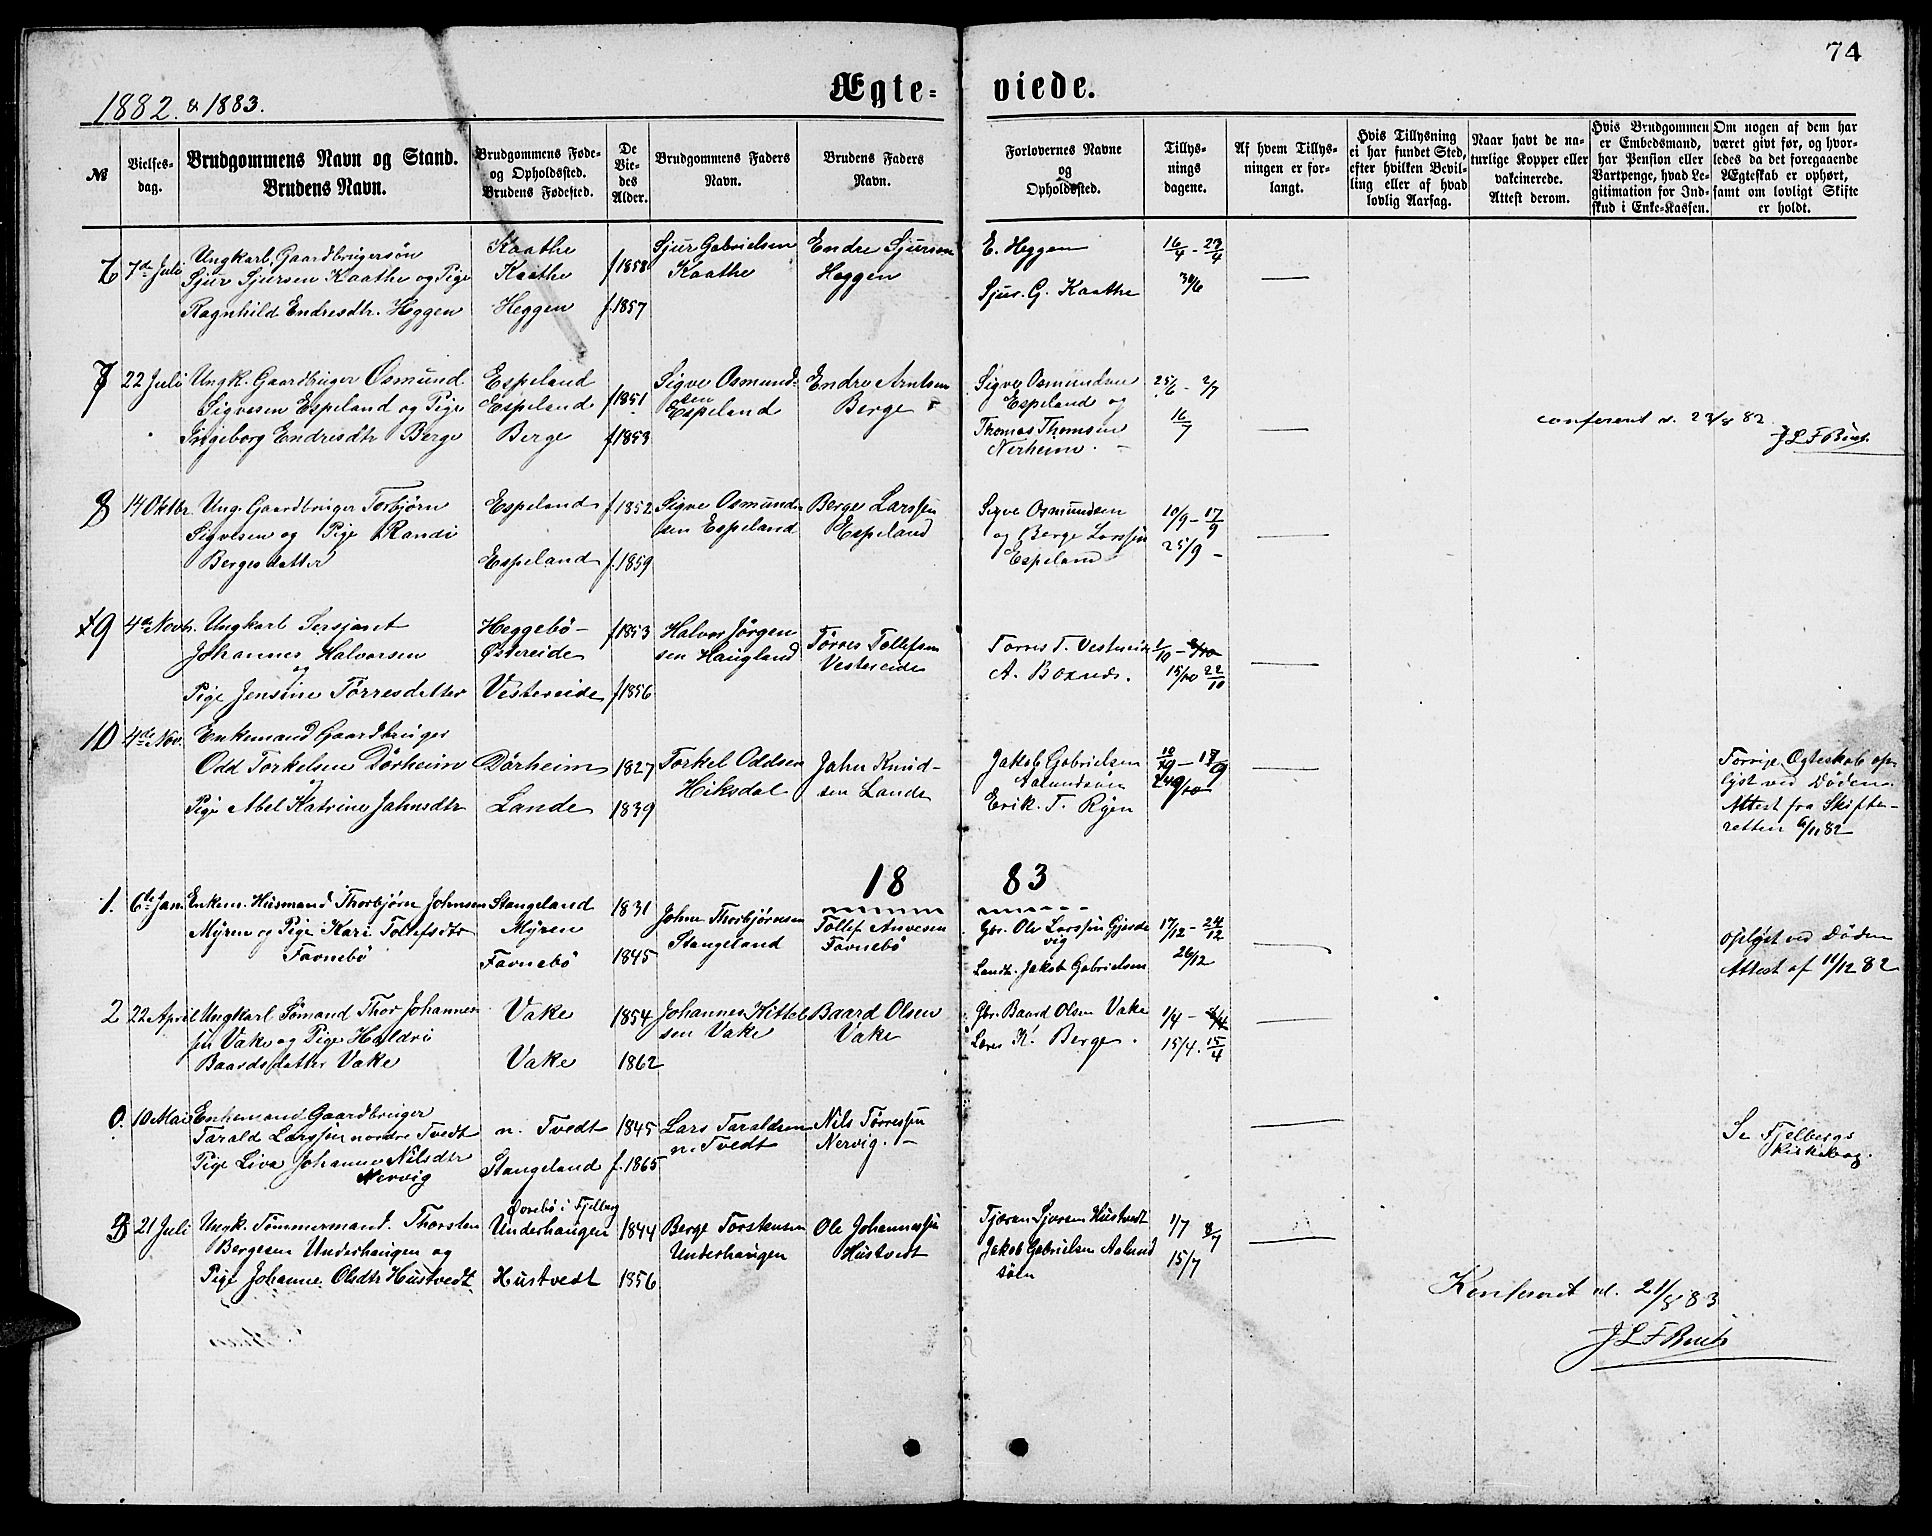 74
1882 & 1883.
Ægte- viede.
№
Vielses-
dag.
Brudgommens Navn og Stand.
Brudens Navn.
Brudgommens Føde-
og Opholdssted.
Brudens Fødested.
De
Vie-
des
Alder.
Brudgommens Faders
Navn.
Brudens Faders
Navn.
Forlovernes Navne
og
Opholdssted.
Tillys-
nings
dagene.
Af hvem Tillys-
ningen er for-
langt.
Hvis Tillysning
ei har fundet Sted,
efter hvilken Bevil-
ling eller af hvad
lovlig Aarsag.
Naar havt de na-
turlige Kopper eller
vakcinerede.
Attest derom.
Hvis Brudgommen
er Embedsmand,
har Pension eller
Vartpenge, hvad Le-
gitimation for Ind-
skud i Enke-Kassen.
Om nogen af dem har
været givt før, og hvor-
ledes da det foregaaende
Ægteskab er ophørt,
samt om lovligt Skifte
er holdt.
6 7de Juli Ungkarl, Gaardbrugersøn Kaathe Sjur Gabrielsen Endre Sjursen E. Heggen 16/4 - 23/4
Sjur Sjursen Kaathe og Pige Kaathe f 1858 Kaathe Heggen Sjur. G. Kaathe 30/6
Ragnhild Endresdtr. Heggen Heggen f. 1857
7 22 Juli Ungk. Gaardbruger Osmund Espeland Sigve Osmund- Endre Arntsen Sigve Osmundsen 25/6 - 2/7
Sigvesen Espeland og Pige Espeland f 1851 sen Espeland Berge Espeland og 16/7
Ingeborg Endresdtr Berge Berge f 1853 Thomas Thomsen
Nerheim. -
conferent d. 23/8 82
J L F Buch
8 14 Oktbr. Ung. Gaardbruger Torbjørn Espeland f 1852 Sigve Osmund- Berge Larssen Sigve Osmundsen 10/9 - 17/9
Sigvesen og Pige Randi sen Espeland Espeland og Berge Larssen 25/9 -
Bergesdatter Espeland f. 1859 Espeland
9 4de Novb. Ungkarl Sersjant Heggebö- f 1853 Halvor Jörgen Tørres Tollefsen Torres T. Vestereide 1/10 - 8/10
Johannes Halvorsen Østereide sen Haugland Vestereide A. Boxneds. 15/10 22/10
og
Pige Jensine Tørresdatter Vestereide f 1856
10 4de Nov. Enkemand Gaardbruger
Odd Torkelsen Dørheim Dørheim 1827 Torkel Oddsen Jahn Knud- Jakob Gabrielsen 10/9 - 17/9
og Hiksdal sen Lande Aalundsøen 24/9
Pige Abel Katrine Jahnsdtr Lande 1839 Erik. T. Ryen
Forrige Ægteskab op-
lyst ved Døden.
Attest fra Skifte-
retten 6/11 82
18 83
1. 6te Jan. Enkem. Husmand Thorbjørn Johnsen Stangeland 1831 Johne Thorbjørnsen Tollef Anvesen Gbr. Ole Larssen Gjerde 17/12 - 24/12
Myren og Pige Kari Tollefsdtr Myren Stangeland Favnebö vig 26/12
Favnebö Favnebö 1845 Landh. Jakob Gabrielsen
oplyst ved Døden
Attest af 11/12 82
2 22 April Ungkarl Sømand Thor Johannes- Vake 1854 Johannes Kittel- Baard Olsen Gbr. Baard Olsen Vake 1/4 - 8/4
sen Vake og Pige Haldri sen Vake Vake Lærer K. Berge. 15/4. 15/4
Baardsdatter Vake Vake 1862
0. 10 Mai Enkemand Gaardbruger
Tarald Larssen nordre Tvedt n. Tvedt 1845 Lars Taraldsen Nils Tørressen
Pige Liva Johanne Nilsdtr n. Tvedt Nervig. -
Nervig Stangeland f. 1865
Se Fjelbergs
Kirkebog.
3 21 Juli Ungk. Tømmermand. Thorsten Øvrebö i Fjelberg
Bergesen Underhaugen og Underhaugen 1844 Berge Torstensen Ole Johannessen Tjæran Sjorsen Hustvedt 1/7 8/7
Pige Johanne Olsdtr Hustvedt Hustvedt 1856 Underhaugen Hustvedt Jakob Gabrielsen Aalund 15/7
söen
Konferent d. 21/8 83
J L F Buch